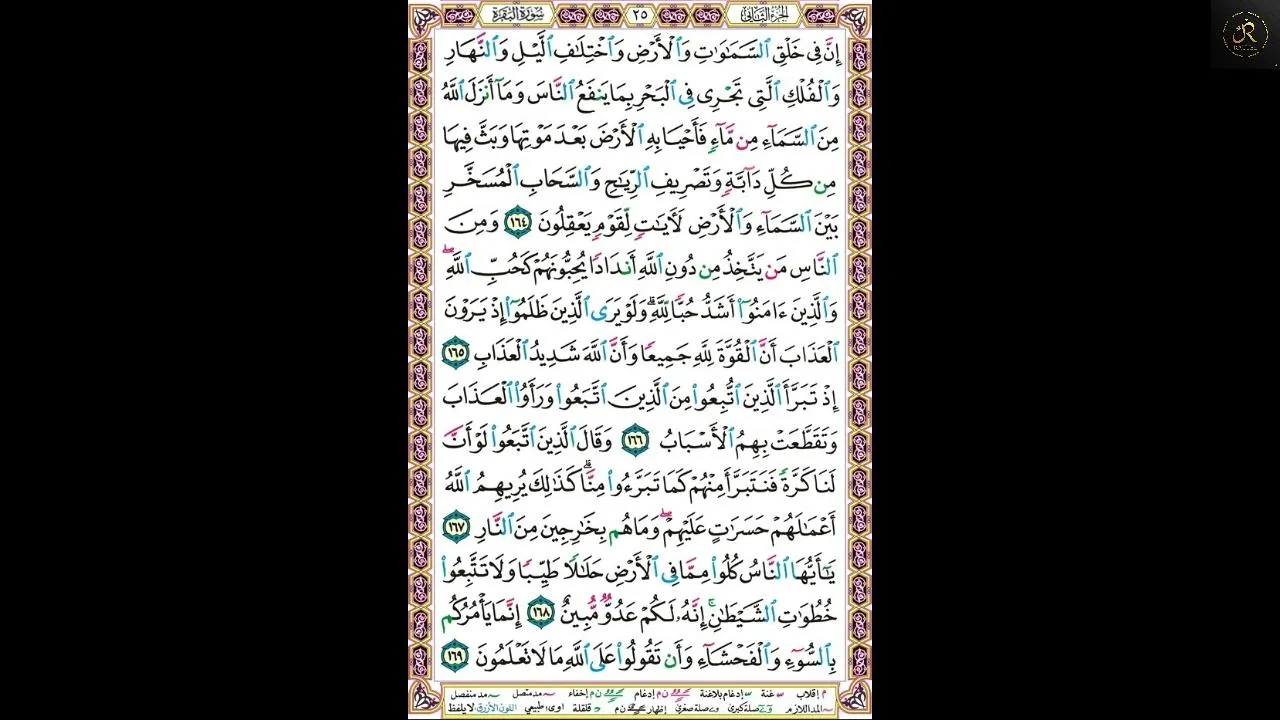 الجزء الثاني
٢٥
سورة البقرة
إِنَّ فِى خَلْقِ ٱلسَّمَـٰوَٰتِ وَٱلْأَرْضِ وَٱخْتِلَـٰفِ ٱلَّيْلِ وَٱلنَّهَارِ
وَٱلْفُلْكِ ٱلَّتِى تَجْرِى فِى ٱلْبَحْرِ بِمَا يَنفَعُ ٱلنَّاسَ وَمَآ أَنزَلَ ٱللَّهُ
مِنَ ٱلسَّمَآءِ مِن مَّآءٍ فَأَحْيَا بِهِ ٱلْأَرْضَ بَعْدَ مَوْتِهَا وَبَثَّ فِيهَا
مِن كُلِّ دَآبَّةٍ وَتَصْرِيفِ ٱلرِّيَـٰحِ وَٱلسَّحَابِ ٱلْمُسَخَّرِ
بَيْنَ ٱلسَّمَآءِ وَٱلْأَرْضِ لَـَٔايَـٰتٍ لِّقَوْمٍ يَعْقِلُونَ ١٦٤ وَمِنَ
ٱلنَّاسِ مَن يَتَّخِذُ مِن دُونِ ٱللَّهِ أَندَادًا يُحِبُّونَهُمْ كَحُبِّ ٱللَّهِ ۖ
وَٱلَّذِينَ ءَامَنُوٓا۟ أَشَدُّ حُبًّا لِّلَّهِ ۗ وَلَوْ يَرَى ٱلَّذِينَ ظَلَمُوٓا۟ إِذْ يَرَوْنَ
ٱلْعَذَابَ أَنَّ ٱلْقُوَّةَ لِلَّهِ جَمِيعًا وَأَنَّ ٱللَّهَ شَدِيدُ ٱلْعَذَابِ ١٦٥
إِذْ تَبَرَّأَ ٱلَّذِينَ ٱتُّبِعُوا۟ مِنَ ٱلَّذِينَ ٱتَّبَعُوا۟ وَرَأَوُا۟ ٱلْعَذَابَ
وَتَقَطَّعَتْ بِهِمُ ٱلْأَسْبَابُ ١٦٦ وَقَالَ ٱلَّذِينَ ٱتَّبَعُوا۟ لَوْ أَنَّ
لَنَا كَرَّةً فَنَتَبَرَّأَ مِنْهُمْ كَمَا تَبَرَّءُوا۟ مِنَّا ۗ كَذَٰلِكَ يُرِيهِمُ ٱللَّهُ
أَعْمَـٰلَهُمْ حَسَرَٰتٍ عَلَيْهِمْ ۖ وَمَا هُم بِخَـٰرِجِينَ مِنَ ٱلنَّارِ ١٦٧
يَـٰٓأَيُّهَا ٱلنَّاسُ كُلُوا۟ مِمَّا فِى ٱلْأَرْضِ حَلَـٰلًا طَيِّبًا وَلَا تَتَّبِعُوا۟
خُطُوَٰتِ ٱلشَّيْطَـٰنِ ۚ إِنَّهُۥ لَكُمْ عَدُوٌّ مُّبِينٌ ١٦٨ إِنَّمَا يَأْمُرُكُم
بِٱلسُّوٓءِ وَٱلْفَحْشَآءِ وَأَن تَقُولُوا۟ عَلَى ٱللَّهِ مَا لَا تَعْلَمُونَ ١٦٩
م إقلاب غنة إدغام بلاغنة ن م إدغام ن م إخفاء مد متصل مد منفصل
المد اللازم صلة كبرى صلة صغرى إظهار ن م قلقلة اوى طبيعي اللون الأزرق لا يلفظ